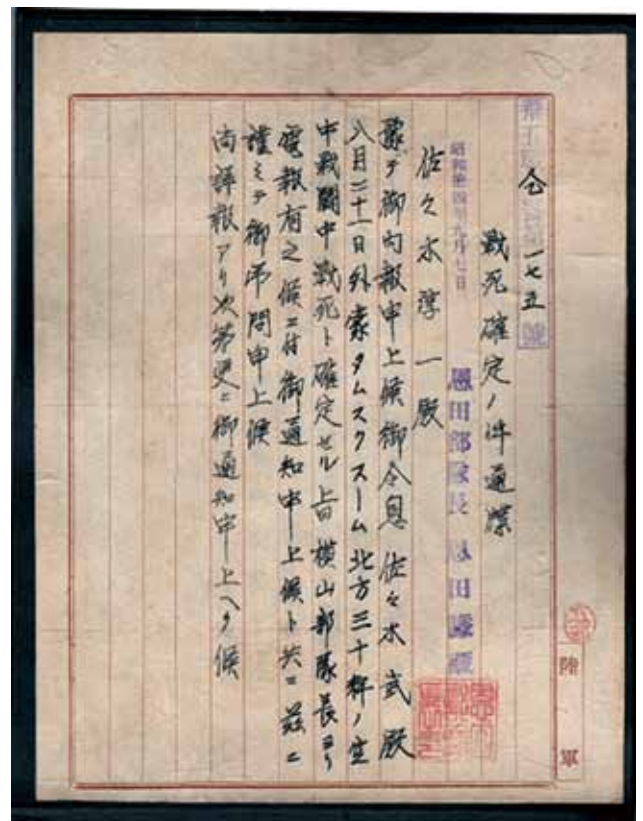 一七五號
戰死確定ノ件通牒
昭和拾四年九月七日
恩田部隊長 恩田謙藏
佐々木淳一殿
豫テ御内報申上候御令息佐々木武殿
八月二十一日外蒙タムスクスーム北方三十粁ノ空
中戰鬪中戰死ト確定セル旨横山部隊長ヨリ
電報有之候ニ付御通知申上候ト共ニ茲ニ
謹ミテ御弔問申上候
尚詳報アリ次第更ニ御通知申上ヘク候
陸軍